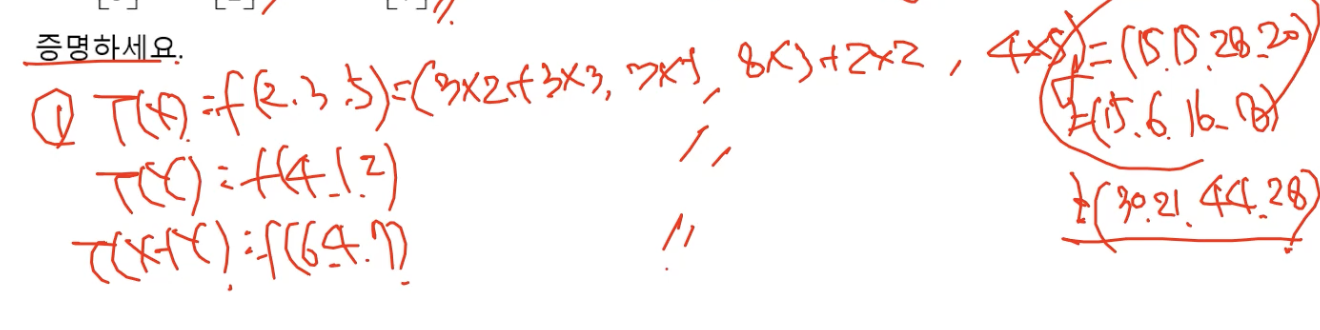 증명하세요.
① T(X) = f(2.3.5) = (3×2+3×3, 3×5, 8×3+2×2, 4×5) = (15.15.28.20)
T(Y) = f(4.1.2) 〃 = (15.6.16.8)
T(X+Y) = f(6.4.7) 〃 = (30.21.44.28)